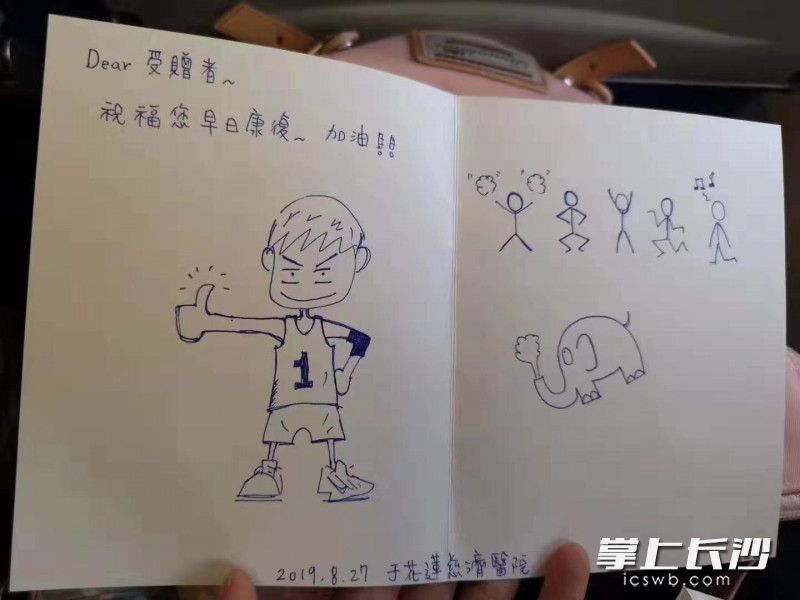 Dear 受贈者~
祝福您早日康復~ 加油!!!
1
2019.8.27 于花蓮慈濟醫院
掌上长沙
icswb.com